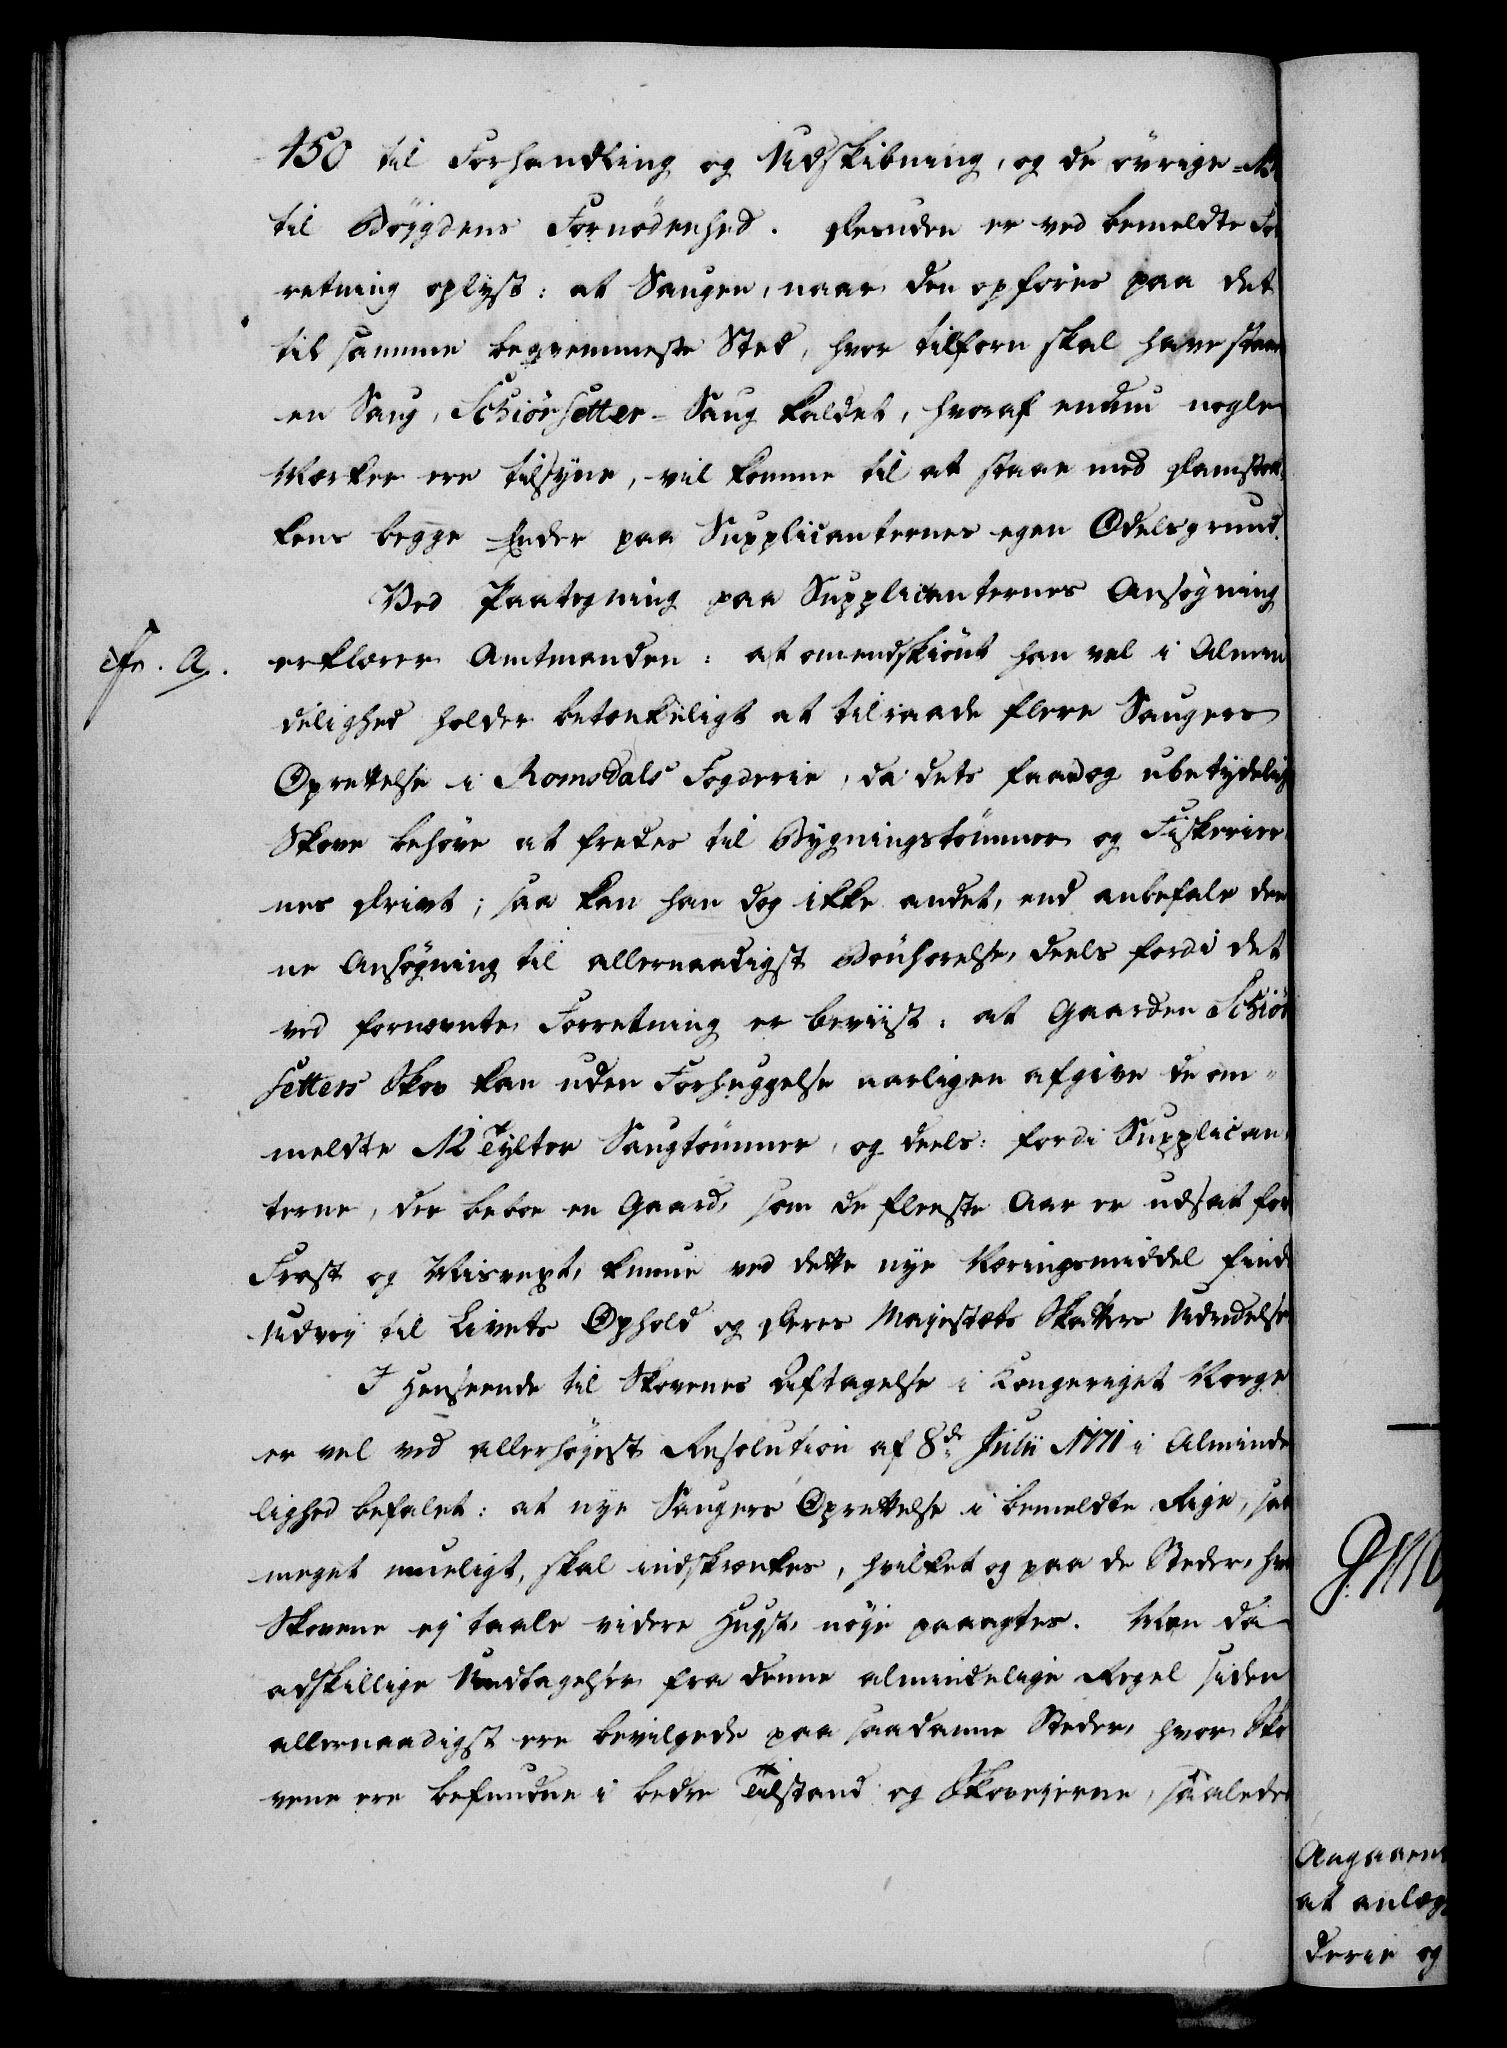 450 til Forhandling og Udskibning, og de övrige
til Böygdens Fornödenhed. Desuden er ved bemeldte For
retning oplyst: at Saugen, naar den opföres paa det
til samme beqvemmeste Sted, hvor tilforn skal have staae
en Saug, Schiörsetter-Saug kaldet, hvoraf endnu nogle
Mærker ere tilsyne, vil komme til at staae med Damstok
kens begge Ender paa Supplicanternes egen Odelsgrund.
Ved Paategning paa Supplicanternes Ansögning
cfr. A.
erklærer Amtmanden: at omendskiönt han vel i Almin
delighed holder betænkeligt at tilraade flere Saugers
Oprettelse i Romsdals Fogderie, da dets faa og ubetydelig
Skove behöve at fredes til Bygningstömmer og Fiskerier
nes Drivt; saa kan han dog ikke andet, end anbefale den
ne Ansögning til allernaadigst Bönhörelse, deels fordi det
ved fornævnte Forretning er beviist: at Gaarden Schiör
setters Skov kan uden Forhuggelse aarligen afgive de om-
meldte 12 Tylter Saugtömmer, og deels: fordi Supplican
terne, der beboe en Gaard, som de fleeste Aar er udsat for
Frost og Misvext, kunne ved dette nye Næringsmiddel finde
Udvej til Livets Ophold og Deres Majestæts Skatters Udredelse.
I Henseende til Skovenes Aftagelse i Kongeriget Norge
er vel ved allerhöyest Resolution af 8de Julii 1771 i Alminde
lighed befalet: at nye Saugers Oprettelse i bemeldte Rige, saa
meget mueligt, skal indskrænkes, hvilket og paa de Steder, hvo
Skovene ej taale videre Hugst, nöje paaagtes. Men da
adskillige Undtagelser fra denne almindelige Regel siden
allernaadigst ere bevilgede paa saadanne Steder, hvor Sko
vene ere befundne i bedre Tilstand og Skovejerne, saaledes
Angaaen
at anlæg
derie og